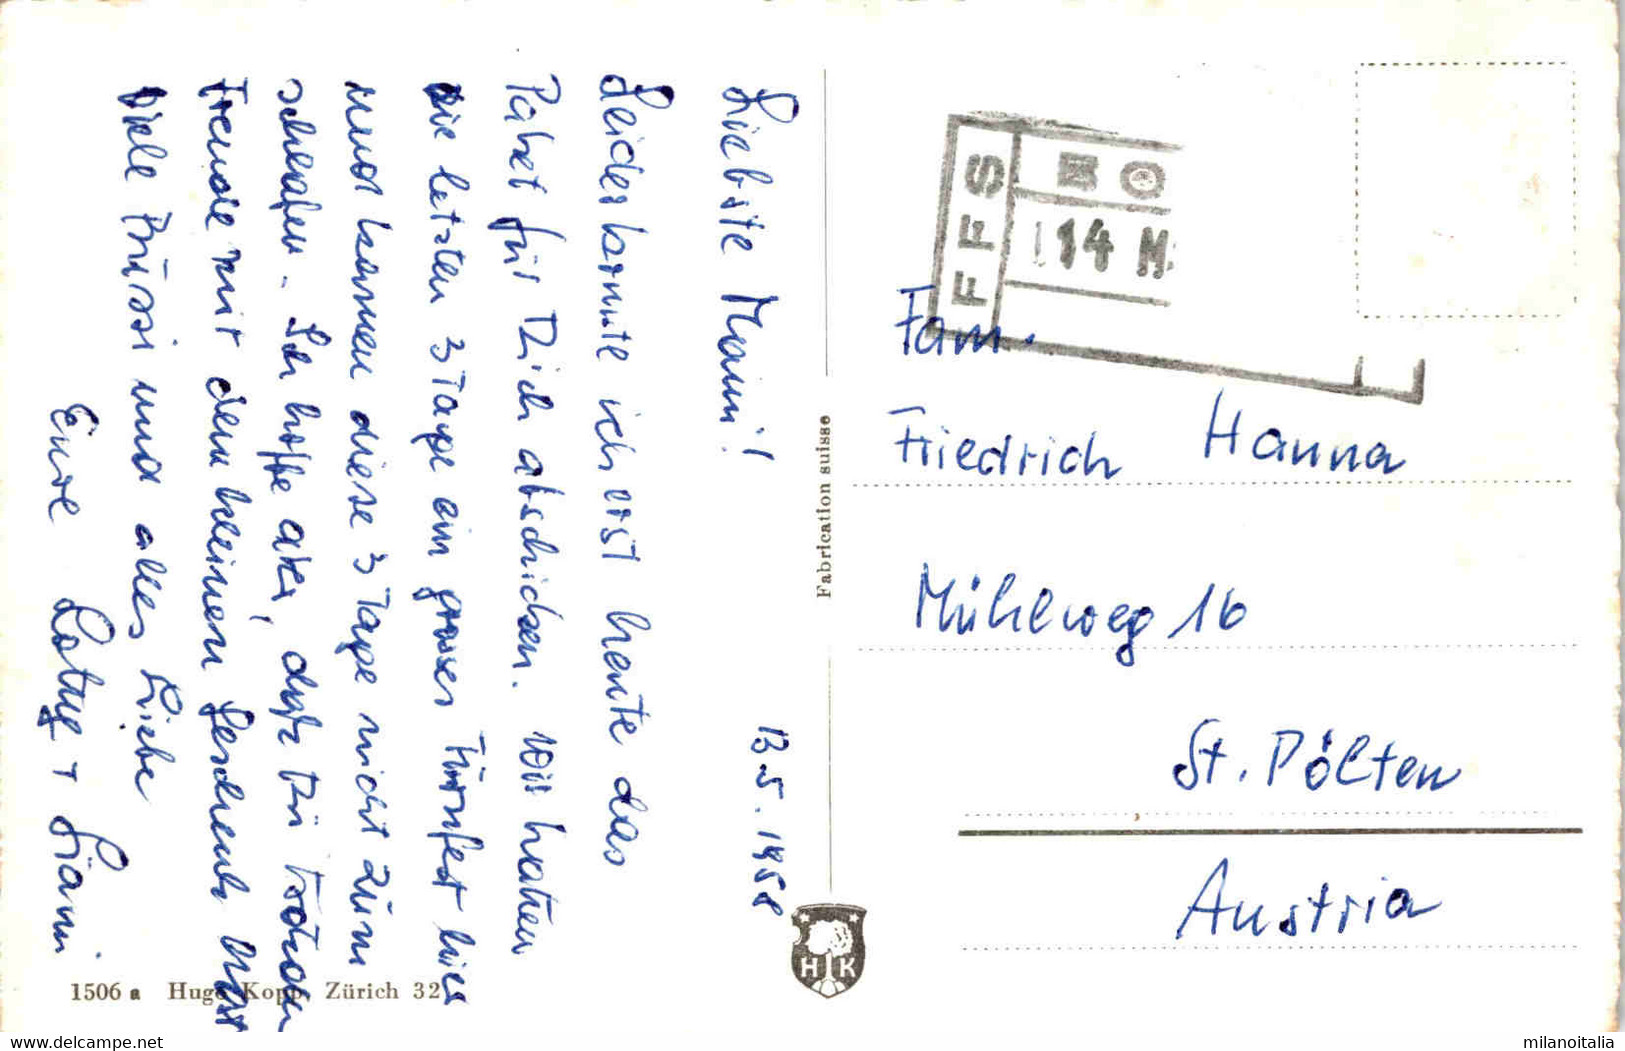 13.5.1958
Liebste Mami!
Leider konnte ich erst heute das
Paket für Dich abschicken. Wir hatten
die letzten 3 Tage ein grosses Turnfest hier
und kamen diese 3 Tage nicht zum
schlafen. Ich hoffe aber, dass Du trotzdem
Freude mit dem kleinen Geschenk hast
Viele Bussi und alles Liebe
Eure +
1506 a Hugo Kopp, Zürich 32
Fabrication suisse
HK
FFS
14 M
Fam.
Friedrich Hanna
Mühlweg 16
St. Pölten
Austria
milanoitalia
www.delcampe.net